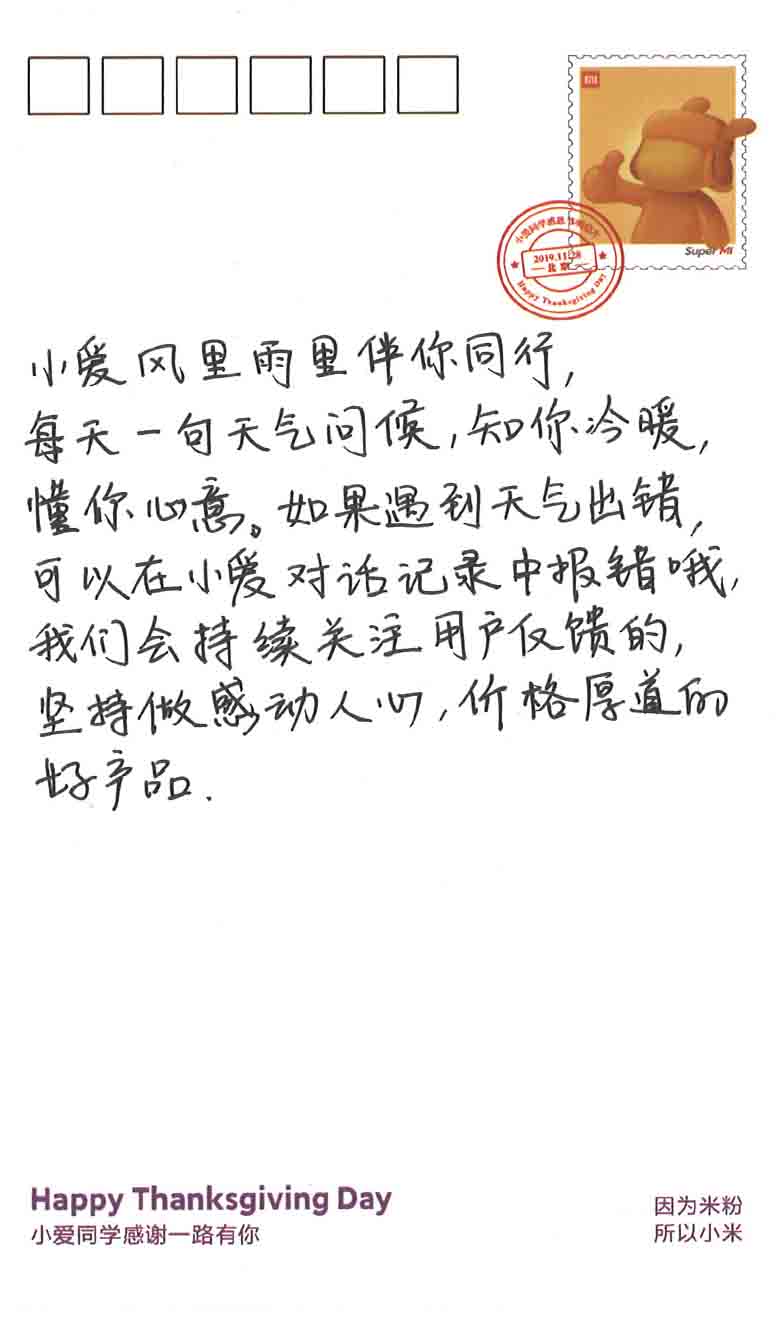 小爱同学感恩节明信片
2019.11.28
北京
Happy Thanksgiving Day
Super MI
小爱风里雨里伴你同行,
每天一句天气问候,知你冷暖,
懂你心意。如果遇到天气出错,
可以在小爱对话记录中报错哦,
我们会持续关注用户反馈的,
坚持做感动人心,价格厚道的
好产品.
Happy Thanksgiving Day
小爱同学感谢一路有你
因为米粉
所以小米